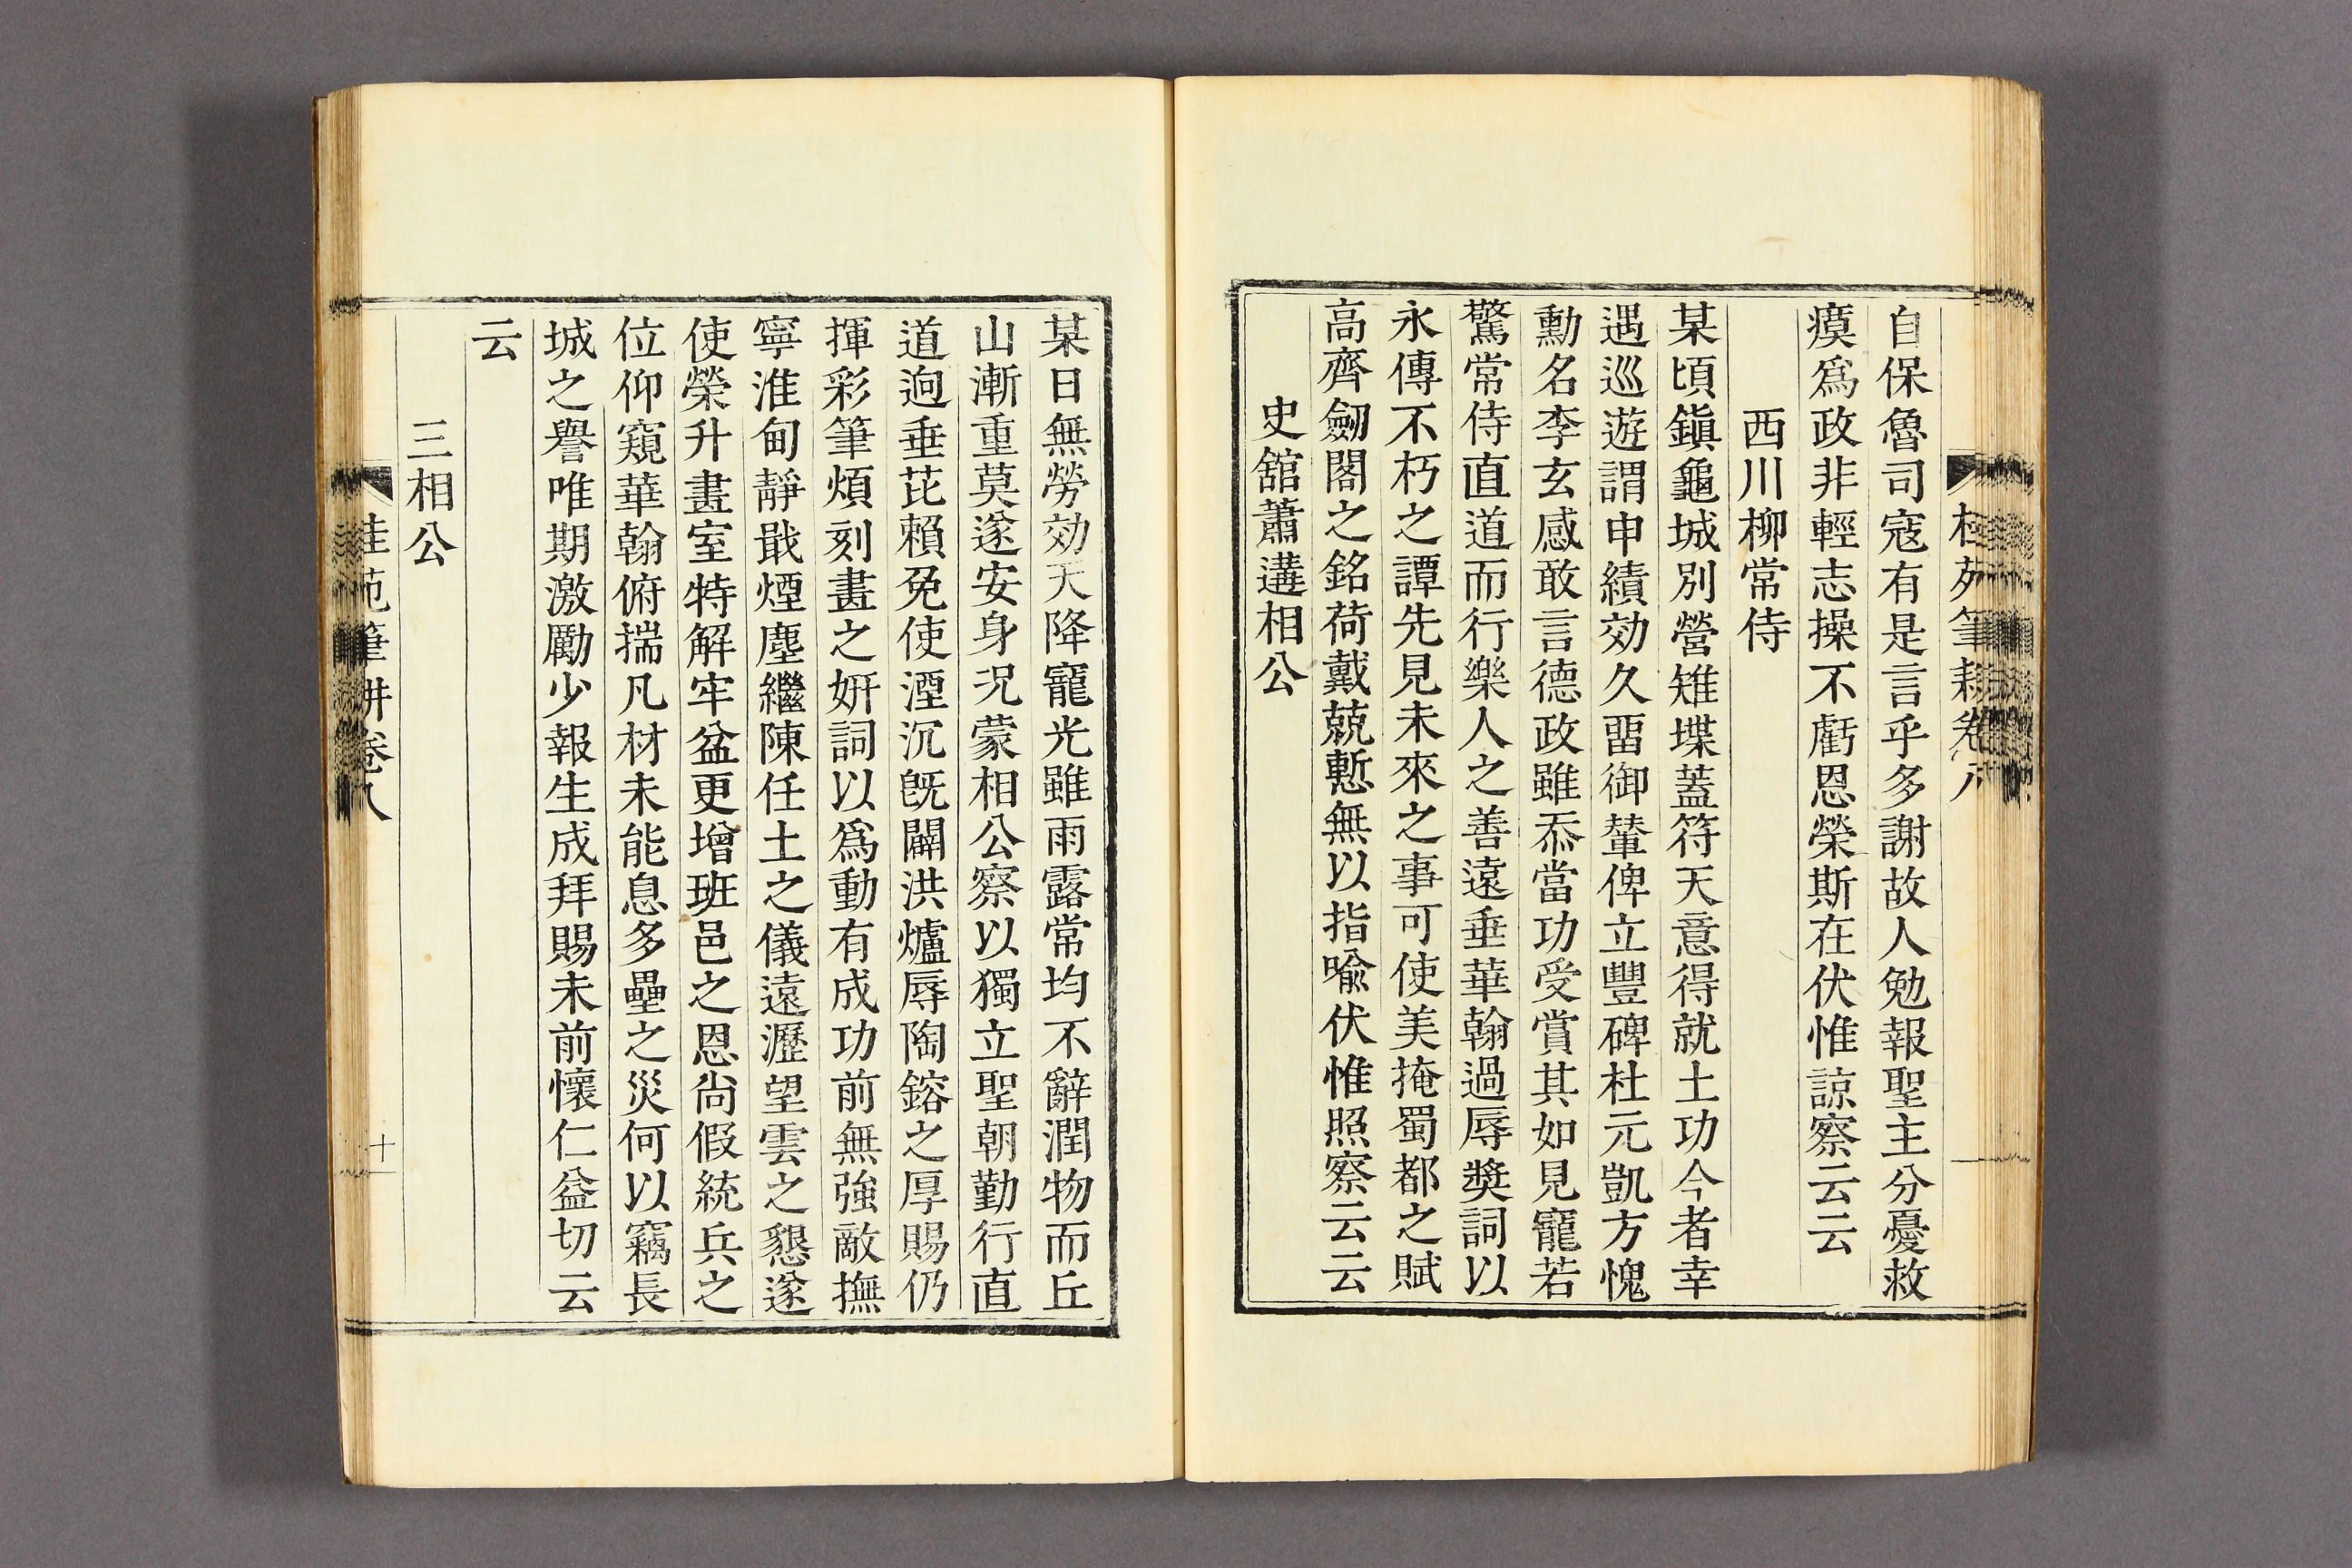 自保魯司寇有是言乎多謝故人勉報聖主分憂救
瘼爲政非輕志操不虧恩榮斯在伏惟諒察云云
西川柳常侍
某頃鎭龜城別營雉堞蓋符天意得就土功今者幸
遇巡遊謂申績効久畱御輦俾立豐碑杜元凱方愧
勳名李玄感敢言德政雖忝當功受賞其如見寵若
驚常侍直道而行樂人之善遠垂華翰過辱奬詞以
永傳不朽之譚先見未來之事可使美掩蜀都之賦
高齊劒閣之銘荷戴兢慙無以指喩伏惟照察云云
史舘蕭遘相公
某日無勞効天降寵光雖雨露常均不辭潤物而丘
山漸重莫遂安身况蒙相公察以獨立聖朝勤行直
道逈垂芘賴免使湮沉旣闢洪爐辱陶鎔之厚賜仍
揮彩筆煩刻畫之妍詞以爲動有成功前無強敵撫
寧淮甸靜戢煙塵繼陳任土之儀遠瀝望雲之懇遂
使榮升畫室特解牢盆更增班邑之恩尙假統兵之
位仰窺華翰俯揣凡材未能息多壘之災何以竊長
城之譽唯期激勵少報生成拜賜未前懷仁益切云
云
三相公
桂苑筆耕卷八
十